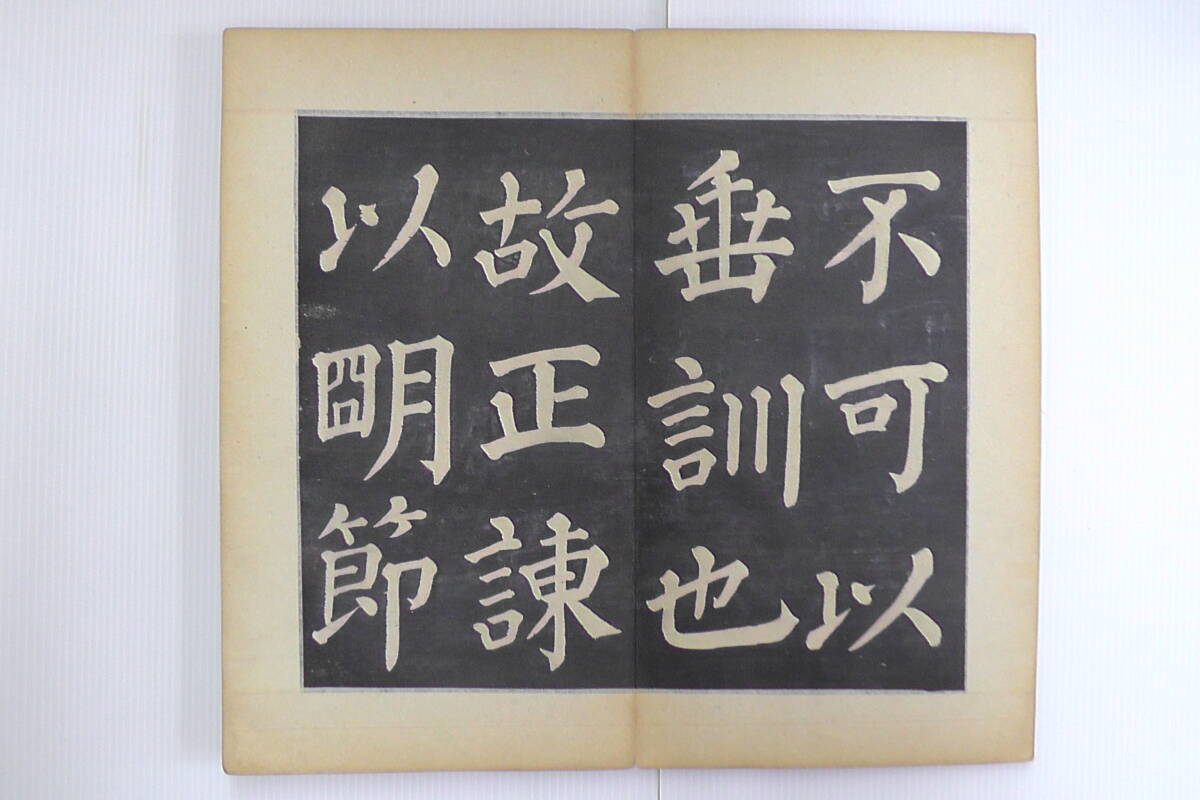 不可以
垂訓也
故正諌
以朙節